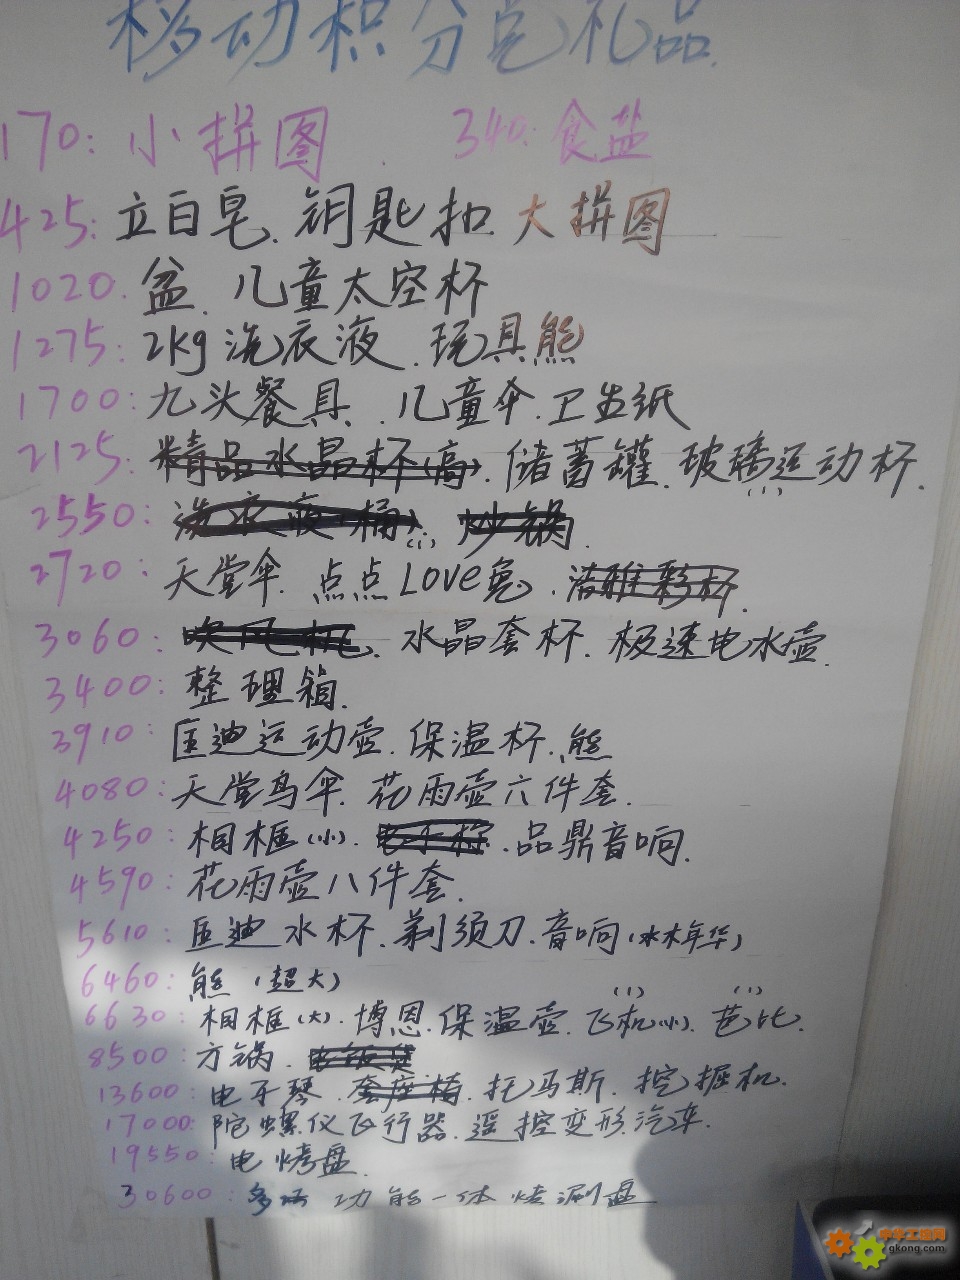 移动积分兑礼品.
170: 小拼图 340: 食盐
425: 立白皂. 钥匙扣. 大拼图
1020. 盆. 儿童太空杯
1275: 2kg洗衣液. 玩具熊
1700: 九头餐具. 儿童伞. 卫生纸
2125: 精品水晶杯(高). 储蓄罐. 玻璃运动杯.
2550: 洗衣液(桶). 炒锅.
2720: 天堂伞. 点点LOVE兔. 洁雅彩杯.
3060: 吹风机. 水晶套杯. 极速电水壶.
3400: 整理箱.
3910: 匡迪运动壶. 保温杯. 熊
4080: 天堂鸟伞. 花雨壶六件套.
4250: 相框(小). 品鼎音响.
4590: 花雨壶八件套.
5610: 匡迪水杯. 剃须刀. 音响(水木年华)
6460: 熊(超大)
6630: 相框(大). 博恩. 保温壶. 飞机(小). 芭比.
8500: 方锅. 电饭煲
13600: 电子琴. 套座椅. 托马斯. 挖掘机.
17000: 陀螺仪飞行器. 遥控变形汽车.
19550: 电烤盘.
30600: 多 功能一体烤涮盘
中华工控网
gkong.com